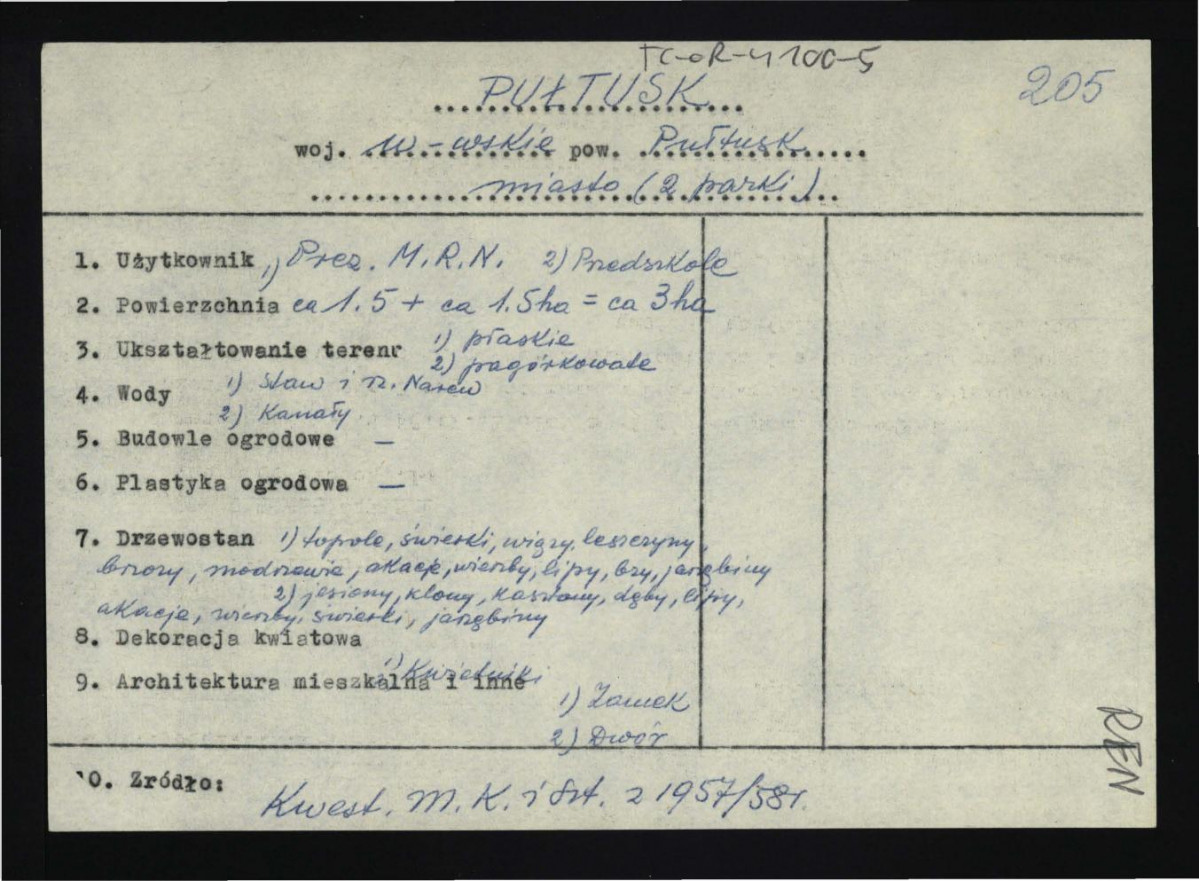 TC-OR-4100-5
205
PUŁTUSK
woj. w-wskie pow. Pułtusk
miasto (2 parki)
1. Użytkownik 1) Prez. M.R.N. 2) Przedszkole
2. Powierzchnia ca 1.5 + ca 1.5ha = ca 3ha
3. Ukształtowanie terenr 1) płaskie
2) pagórkowate
4. Wody 1) Staw i rz. Narew
2) Kanały
5. Budowle ogrodowe —
6. Plastyka ogrodowa —
7. Drzewostan 1) topole, świerki, wiązy, leszczyny,
brzozy, modrzewie, akacje, wierzby, lipy, bzy, jarzębiny
2) jesiony, klony, kasztany, dęby, lipy,
akacje, wierzby, świerki, jarzębiny
8. Dekoracja kwiatowa
1) Kwietniki
9. Architektura mieszkalna i inne
1) Zamek
2) Dwór
10. Zródło:
Kwest. M.K. i Szt. z 1957/58r.
REN